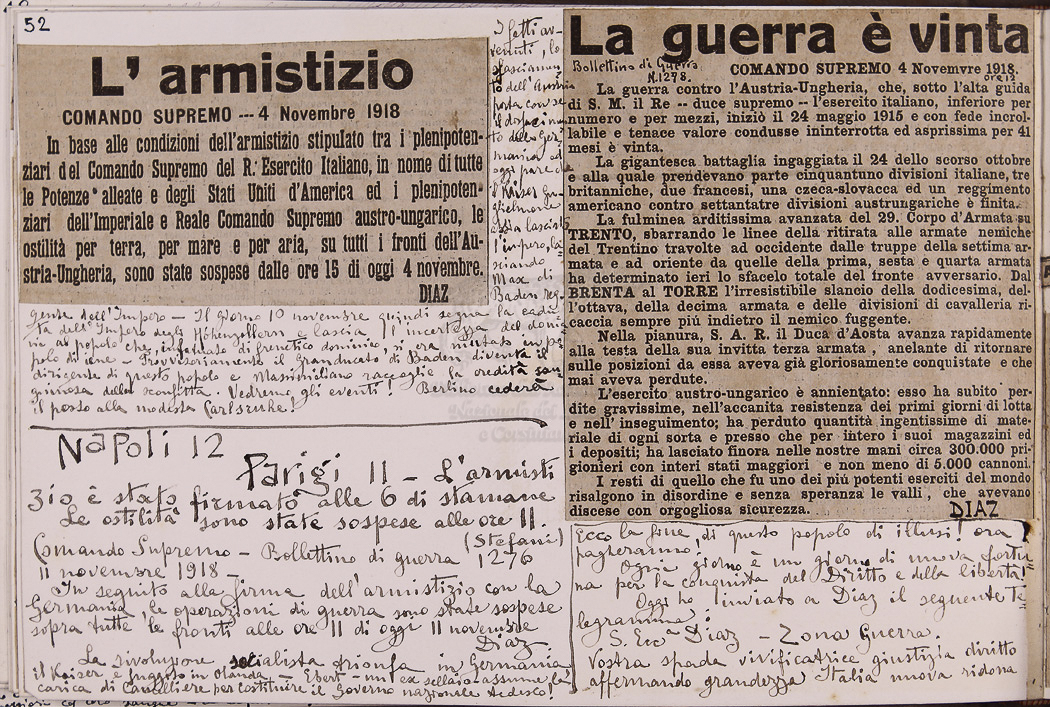 52
L' armistizio
COMANDO SUPREMO --- 4 Novembre 1918
In base alle condizioni dell'armistizio stipulato tra i plenipoten-
ziari del Comando Supremo del R. Esercito Italiano, in nome di tutte
le Potenze alleate e degli Stati Uniti d'America ed i plenipoten-
ziari dell'Imperiale e Reale Comando Supremo austro-ungarico, le
ostilità per terra, per mare e per aria, su tutti i fronti dell'Au-
stria-Ungheria, sono state sospese dalle ore 15 di oggi 4 novembre.
DIAZ
I fatti av-
venuti, lo
sfasciamen
to dell'Austria
porta con se
il
to della Ger
mania ed
oggi pare che
il Kaiser Gu-
glielmone
abbia lasciato
l'impero, la
sciando
Max di
Baden reg-
gente dell'Impero - Il giorno 10 novembre quindi segna la cadu
ta dell'Impero degli Hohenzollern e lascia l'incertezza del domi
nio al popolo che, infatuato di frenetico dominio, si era mutato in po
polo di iene - Provvisoriamente il Granducato di Baden diventa il
dirigente di questo popolo e Massimiliano raccoglie la eredità san
guinosa della sconfitta. Vedremo gli eventi! Berlino cederà
il posto alla modesta Carlsruhe!
Napoli 12
Parigi 11 - L'armisti
zio è stato firmato alle 6 di stamane
Le ostilità sono state sospese alle ore 11.
(Stefani)
Comando Supremo - Bollettino di guerra 1276
11 novembre 1918 -
In seguito alla firma dell'armistizio con la
Germania le operazioni di guerra sono state sospese
sopra tutte le fronti alle ore 11 di oggi 11 novembre
Diaz
La rivoluzione socialista trionfa in Germania
il Kaiser è fuggito in Olanda - Ebert - un ex sellaio assume la
carica di Cancelliere per costituire il Governo nazionale tedesco!
La guerra è vinta
Bollettino di Guerra
N. 1278.
COMANDO SUPREMO 4 Novemvre 1918.
ore 12
La guerra contro l'Austria-Ungheria, che, sotto l'alta guida
di S. M. il Re -- duce supremo -- l'esercito italiano, inferiore per
numero e per mezzi, iniziò il 24 maggio 1915 e con fede incrol-
labile e tenace valore condusse ininterrotta ed asprissima per 41
mesi è vinta.
La gigantesca battaglia ingaggiata il 24 dello scorso ottobre
e alla quale prendevano parte cinquantuno divisioni italiane, tre
britanniche, due francesi, una czeca-slovacca ed un reggimento
americano contro settantatre divisioni austrungariche è finita.
La fulminea arditissima avanzata del 29. Corpo d'Armata su
TRENTO, sbarrando le linee della ritirata alle armate nemiche
del Trentino travolte ad occidente dalle truppe della settima ar-
mata e ad oriente da quelle della prima, sesta e quarta armata
ha determinato ieri lo sfacelo totale del fronte avversario. Dal
BRENTA al TORRE l'irresistibile slancio della dodicesima, del-
l'ottava, della decima armata e delle divisioni di cavalleria ri-
caccia sempre piú indietro il nemico fuggente.
Nella pianura, S. A. R. il Duca d'Aosta avanza rapidamente
alla testa della sua invitta terza armata, anelante di ritornare
sulle posizioni da essa aveva già gloriosamente conquistate e che
mai aveva perdute.
L'esercito austro-ungarico è annientato: esso ha subito per-
dite gravissime, nell'accanita resistenza dei primi giorni di lotta
e nell' inseguimento; ha perduto quantità ingentissime di mate-
riale di ogni sorta e presso che per intero i suoi magazzini ed
i depositi; ha lasciato finora nelle nostre mani circa 300.000 pri-
gionieri con interi stati maggiori e non meno di 5.000 cannoni.
I resti di quello che fu uno dei piú potenti eserciti del mondo
risalgono in disordine e senza speranza le valli, che avevano
discese con orgogliosa sicurezza.
DIAZ
Ecco la fine, di questo popolo di illusi! ora
pagheranno!
Ogni giorno è un giorno di nuova fortu=
na per la conquista del Diritto e della libertà!
Oggi ho inviato a Diaz il seguente te=
legramma:
S. Ecc.a Diaz - Zona Guerra.
Vostra spada vivificatrice giustizia diritto
affermando grandezza Italia nuova ridona